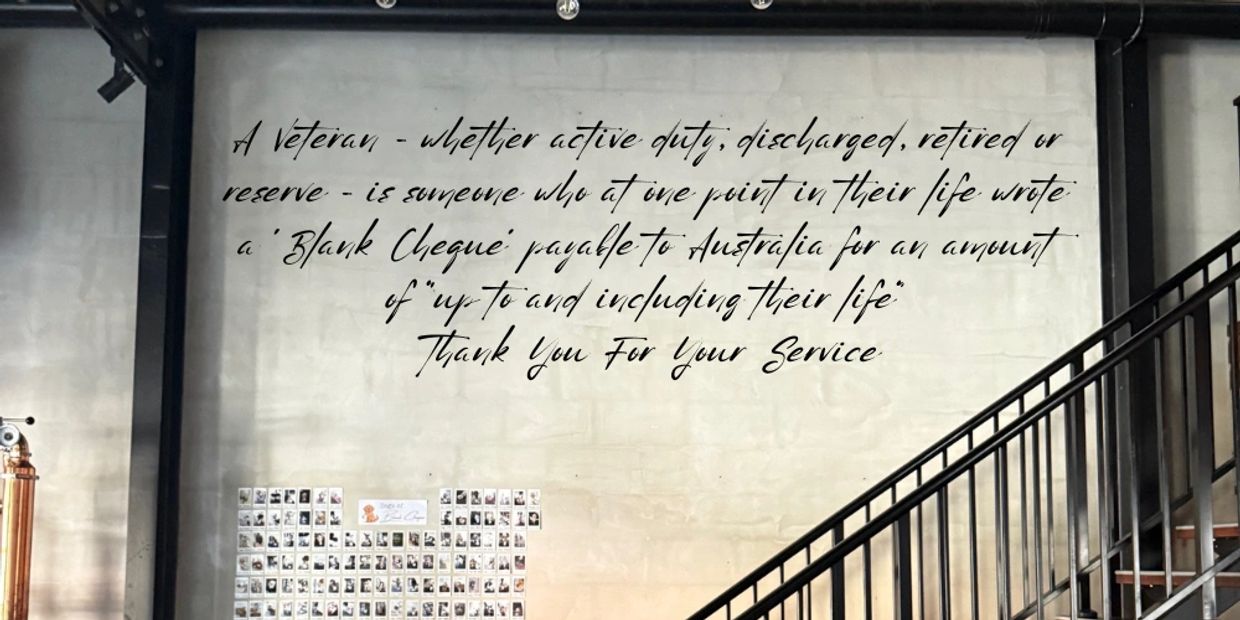 A Veteran - whether active duty, discharged, retired or
reserve - is someone who at one point in their life wrote
a ' Blank Cheque' payable to Australia for an amount
of "up to and including their life"
Thank You For Your Service
Blank Cheque